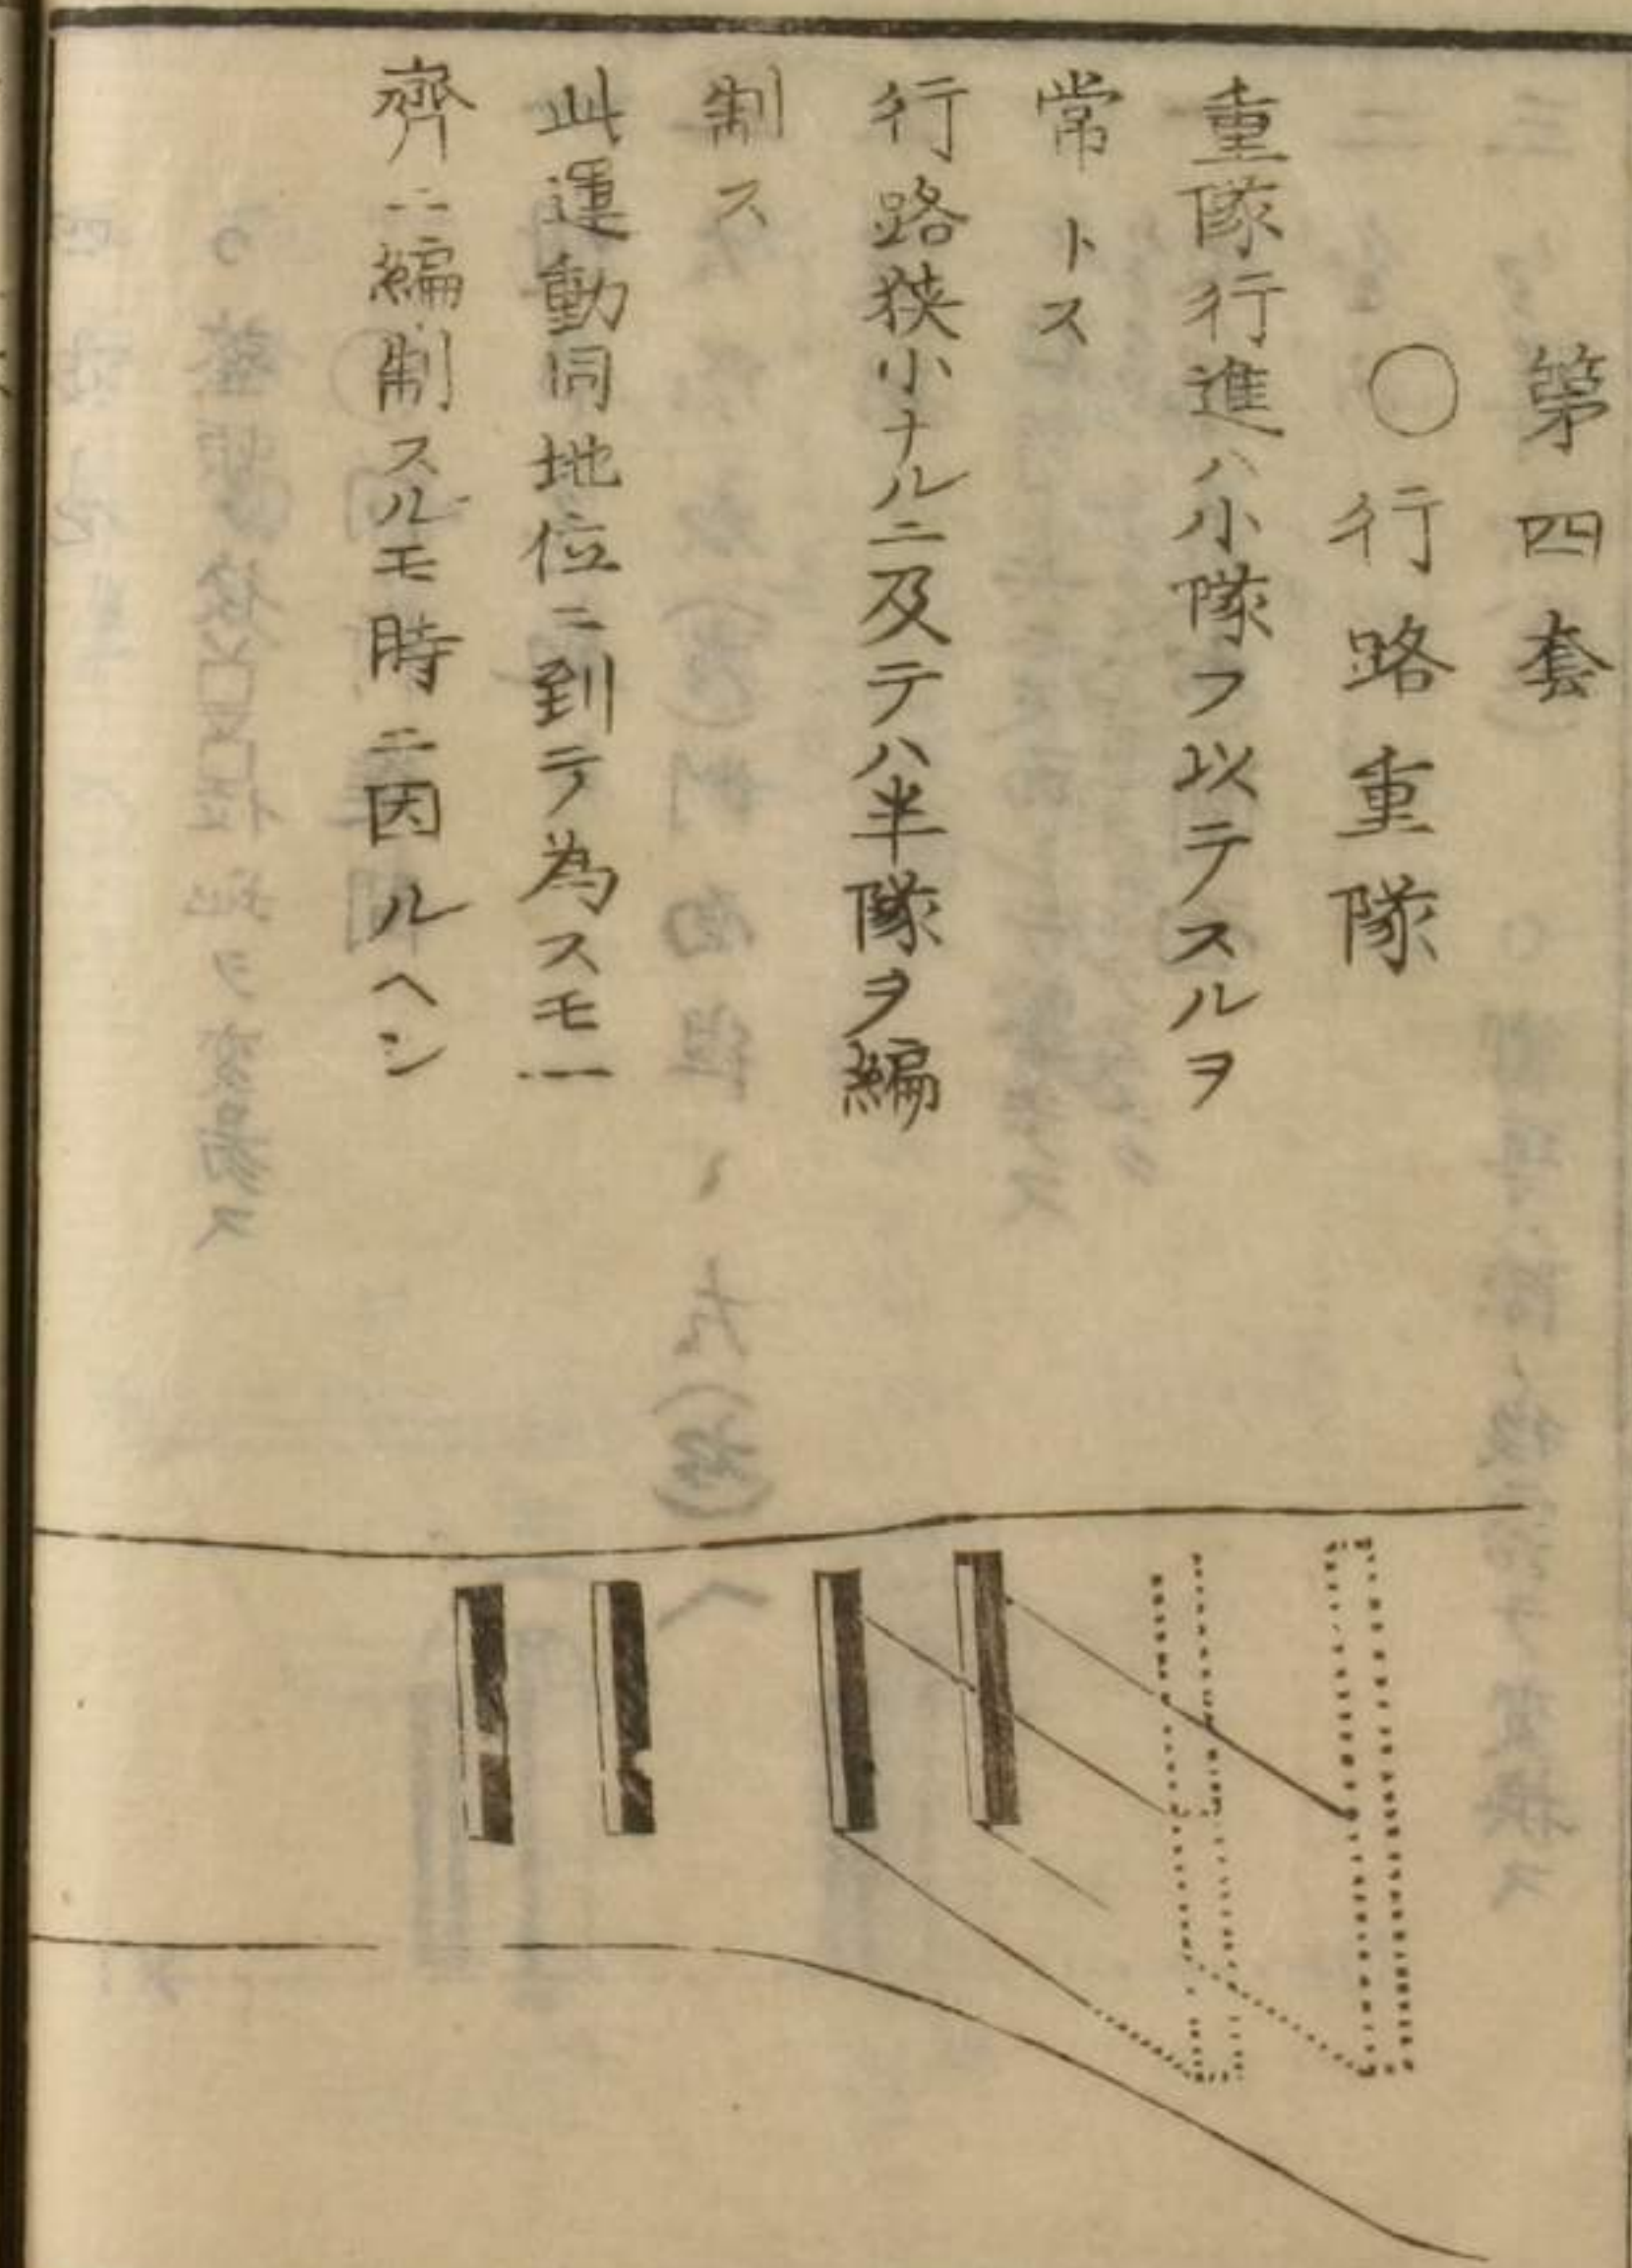 第四套
○行路重隊
重隊行進ハ小隊フ以テスルヲ
常トス
行路狭小ナルニ及テハ半隊ヲ編
制ス
此運動同地位ニ到テ為スモ一
齊ニ編制スルモ時ニ因ルヘシ